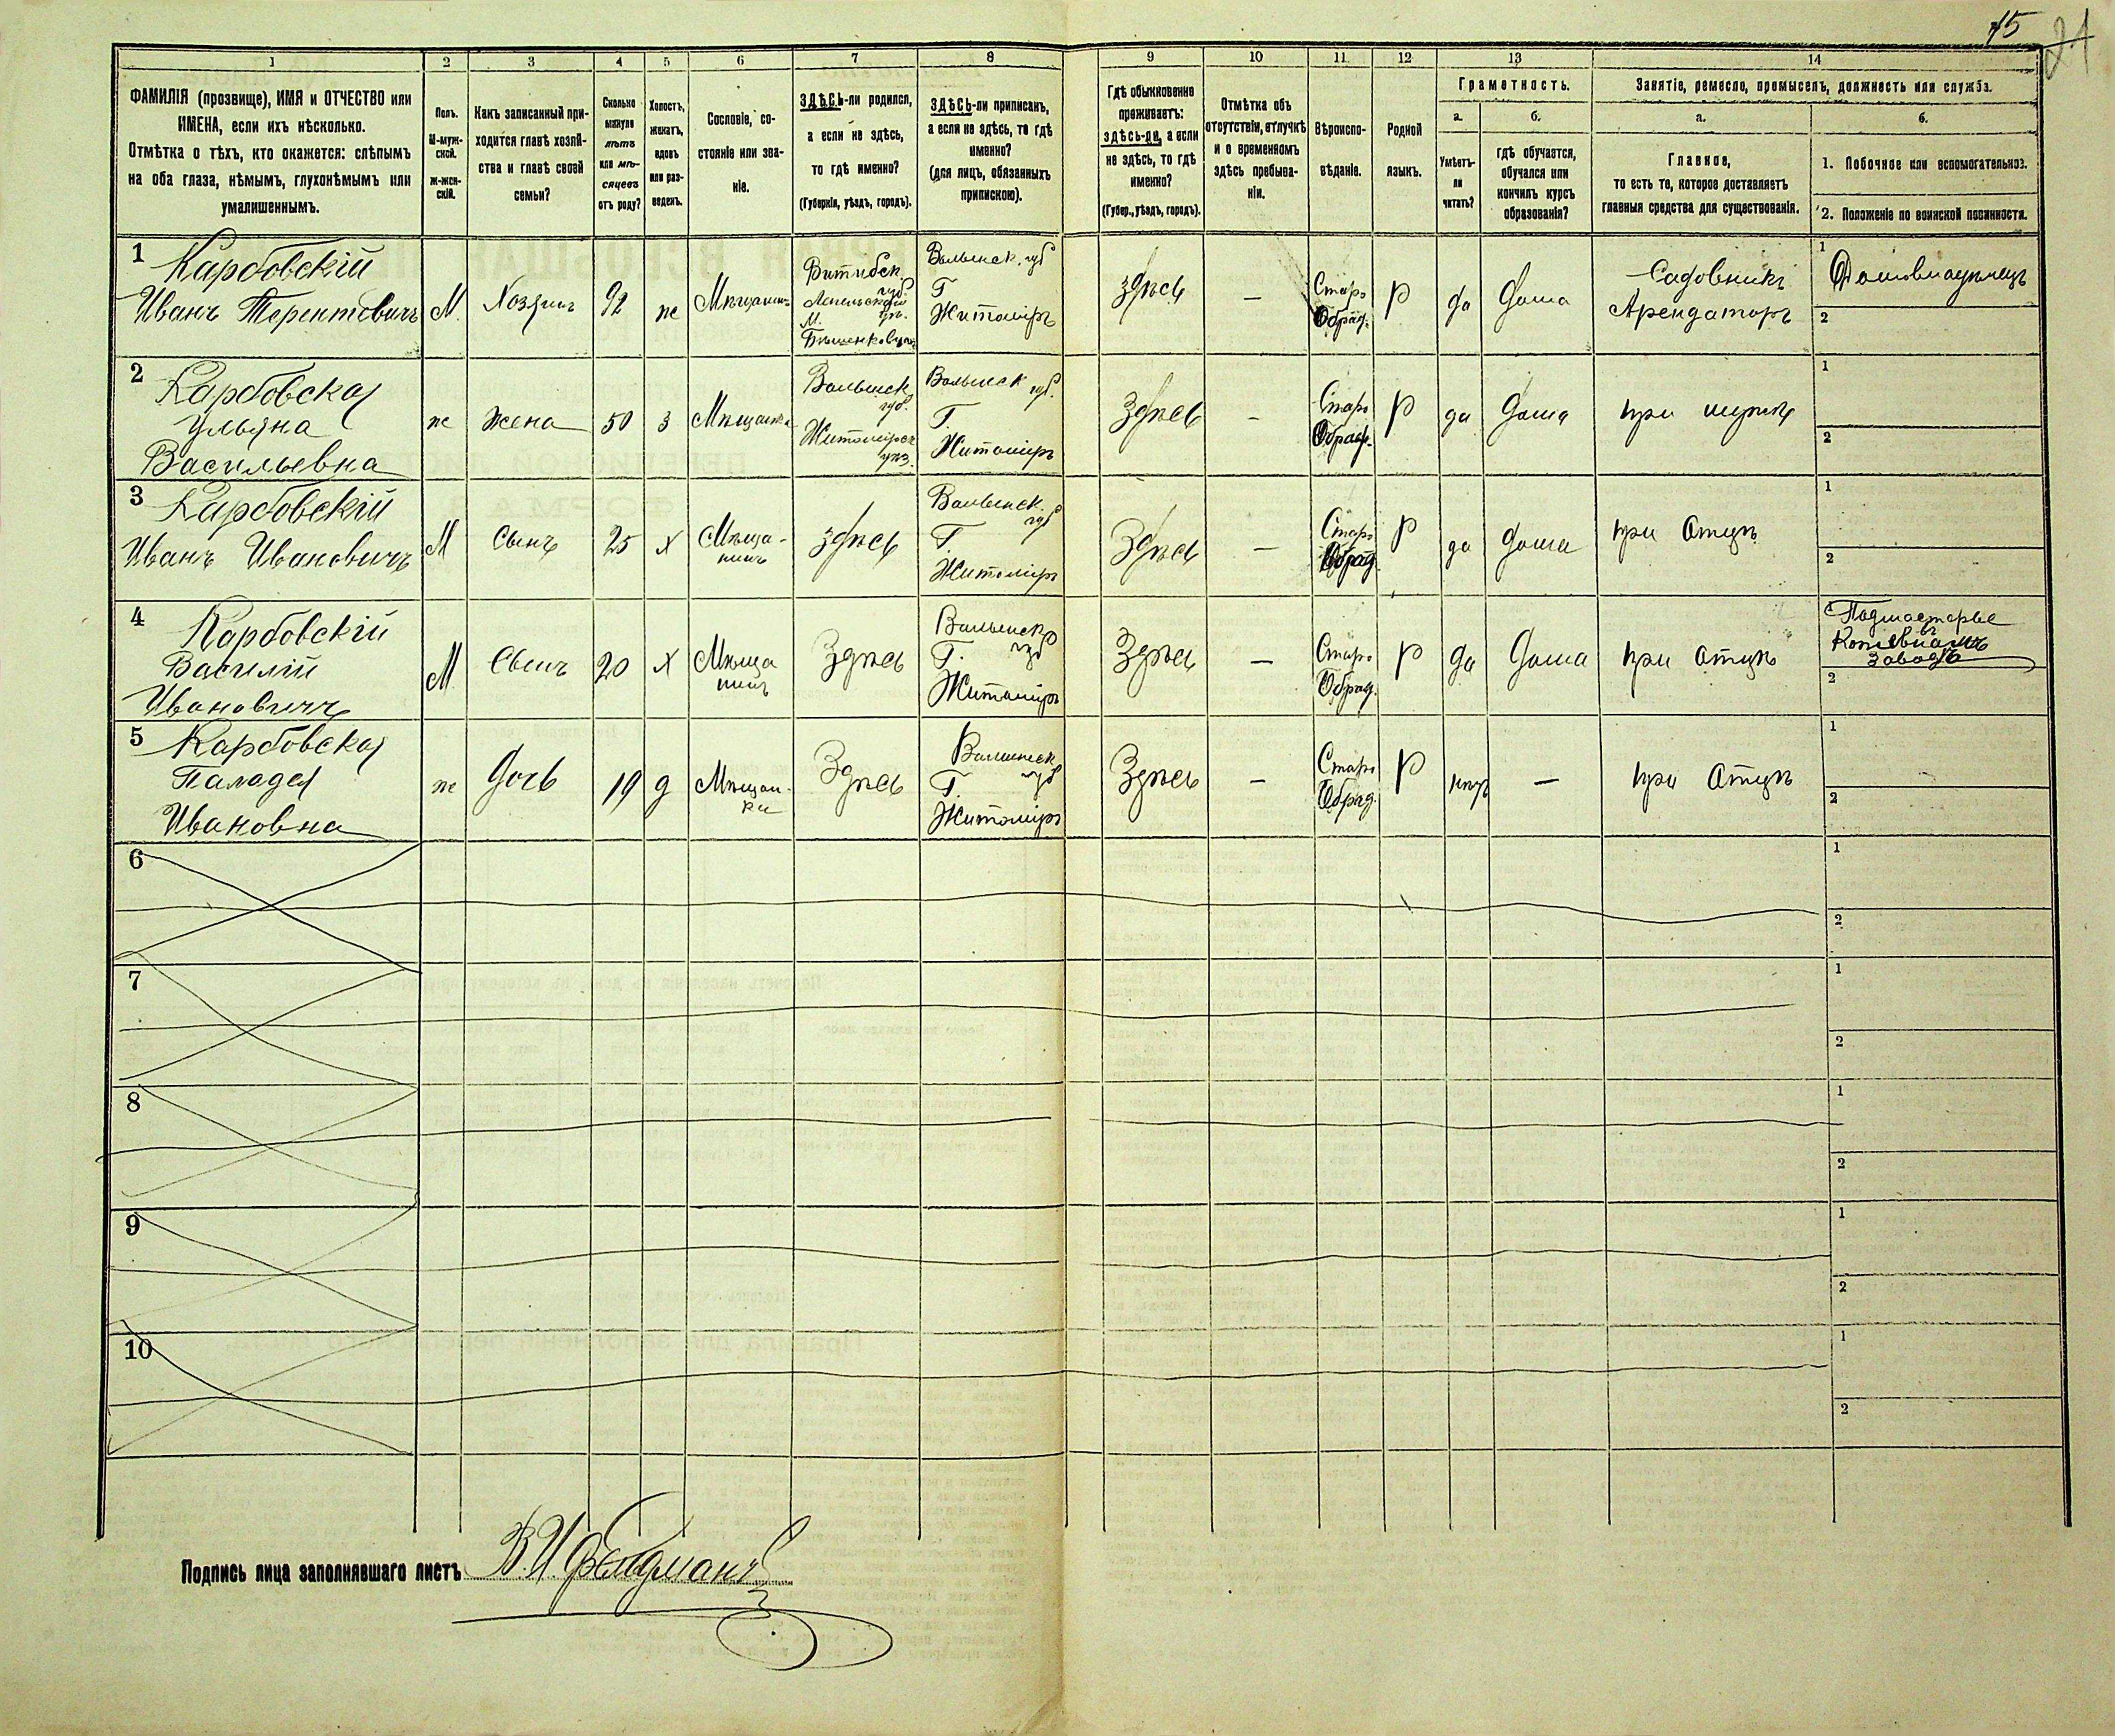 45
21
1 2 3 4 5 6 7 8 9 10 11 12 13 14
ФАМИЛІЯ (прозвище), ИМЯ и ОТЧЕСТВО или
ИМЕНА, если ихъ нѣсколько.
Отмѣтка о тѣхъ, кто окажется: слѣпымъ
на оба глаза, нѣмымъ, глухонѣмымъ или
умалишеннымъ.
Полъ.
М-муж-
ской.
ж-жен-
скій.
Какъ записанный при-
ходится главѣ хозяй-
ства и главѣ своей
семьи?
Сколько
минуло
лѣтъ
или мѣ-
сяцевъ
отъ роду?
Холостъ,
женатъ,
вдовъ
или раз-
веденъ.
Сословіе, со-
стояніе или зва-
ніе.
ЗДѢСЬ-ли родился,
а если не здѣсь,
то гдѣ именно?
(Губернія, уѣздъ, городъ).
ЗДѢСЬ-ли приписанъ,
а если не здѣсь, то гдѣ
именно?
(для лицъ, обязанныхъ
припискою).
Гдѣ обыкновенно
проживаетъ:
здѣсь-ли, а если
не здѣсь, то гдѣ
именно?
(Губер., уѣздъ, городъ).
Отмѣтка объ
отсутствіи, отлучкѣ
и о временномъ
здѣсь пребыва-
ніи.
Вѣроиспо-
вѣданіе.
Родной
языкъ.
Грамотность.
а.
Умѣетъ-
ли
читать?
б.
гдѣ обучается,
обучался или
кончилъ курсъ
образованія?
Занятіе, ремесло, промыселъ, должность или служба.
а.
Главное,
то есть то, которое доставляетъ
главныя средства для существованія.
б.
1. Побочное или вспомогательное.
2. Положеніе по воинской повинности.
1
Карбовскій
Иванъ Терентовичъ
М.
Хозяинъ
92
же
Мѣщанинъ
Витибск.
губ.
Лепельскій
уѣ.
М.
Бѣшенковичи
Волынск. губ
Г
Житоміръ
здѣсь
—
Старо
Обряд.
Р
да
дома
Садовникъ
Арендаторъ
1
Домовладѣлецъ
2
2
Карбовская
Ульяна
Васильевна
же
Жена
50
з
Мѣщанка
Волынск
губ.
Житомірск
уѣз.
Волынск губ.
Г.
Житоміръ
Здѣсь
-
Старо
Обряд.
Р
да
дома
при мужѣ
1
2
3
Карбовскій
Иванъ Ивановичъ
М
Сынъ
25
х
Мѣща-
нинъ
здѣсь
Волынск.
губ
Г.
Житоміръ
Здѣсь
—
Старо
Обряд.
Р
да
дома
при Отцѣ
1
2
4
Карбовскій
Василій
Ивановичъ
М
Сынъ
20
х
Мѣща
нинъ
Здѣсь
Волынск
губ
Г.
Житоміръ
Здѣсь
—
Старо
Обряд.
Р
да
дома
при отцѣ
1
Подмастерье
въ
заводѣ
2
5
Карбовская
Паладея
Ивановна
же
дочь
19
д
Мѣщан-
ка
Здѣсь
Волынск
губ
Г.
Житоміръ
Здѣсь
—
Старо
Обряд.
Р
нѣтъ
—
при Отцѣ
1
2
6
1
2
7
1
2
8
1
2
9
1
2
10
1
2
Подпись лица заполнявшаго листъ В. И. Фельдманъ